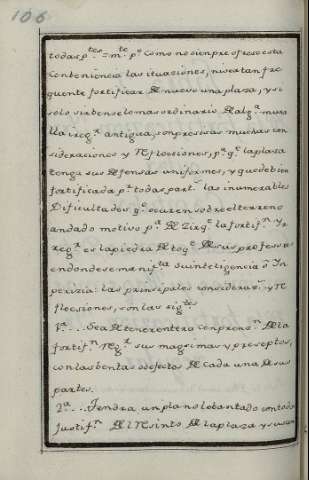 106
todas p.tes = m.te p.o Como no sienpre ofrese esta
Conbeniencia las ituasiones, ni es tan fre
quente fortificar de nuevo una plasa, y si
solo sirbense lo mas ordinario de alg.a mura
lla ireg.r antigua, son presisas muchas con
sideraciones y Reflecsiones, p.a q.e la plasa
tenga sus defensas uniformes, y quede bien
fortificada p.r todas part.s las inumerables
Dificultades q.e ocuren sobre el tereno
an dado motivo p.a dezir q.e la fortif.n Yr
reg.r es la piedra de toq.e de sus profesores
en donde se manifi.ta su inteligencia o Yn
perizia: las prinsipales consideras.s y Re
flecsiones, son las sig.tes
1.a ... Sea de tener entera conprens.n de la
fortif.n Reg.r sus magsimas y preseptos,
con las bentajas o defectos de cada una de sus
partes.
2.a ... Tendra un plano lebantado con toda
justif.n del Resinto de la plaza y su con